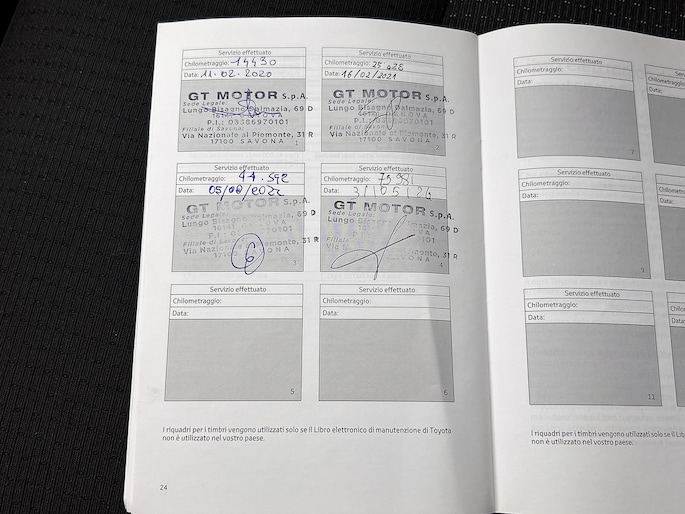 Servizio effettuato
Chilometraggio: 14430
Data: 11.02.2020
GT MOTOR S.p.A.
Sede Legale:
Lungo Bisagno Dalmazia, 69 D
16141 GENOVA
P.I.: 03386970101
Filiale di Savona:
Via Nazionale al Piemonte, 31 R
17100 SAVONA
1
Servizio effettuato
Chilometraggio: 25
Data: 16/02/2021
GT MOTOR S.p.A.
Sede Legale:
Lungo Bisagno Dalmazia, 69 D
GENOVA
Filiale di Savona:
Via Nazionale al Piemonte, 31 R
17100 SAVONA
2
Servizio effettuato
Chilometraggio:
Data:
GT MOTOR S.p.A.
Sede Legale:
Lungo Bisagno Dalmazia, 69 D
Via Nazionale al Piemonte, 31 R
17100 SAVONA
3
Servizio effettuato
Chilometraggio:
Data:
GT MOTOR S.p.A.
Sede Legale:
Lungo
SAVONA
4
Servizio effettuato
Chilometraggio:
Data:
5
Servizio effettuato
Chilometraggio:
Data:
6
I riquadri per i timbri vengono utilizzati solo se il Libro elettronico di manutenzione di Toyota
non è utilizzato nel vostro paese.
24
Servizio effettuato
Chilometraggio:
Data:
7
Servizio effettuato
Chilometraggio:
Data:
9
Servizio effettuato
Chilometraggio:
Data:
11
I riquadri per i timbri vengono utilizzati solo se il
non è utilizzato nel vostro paese.